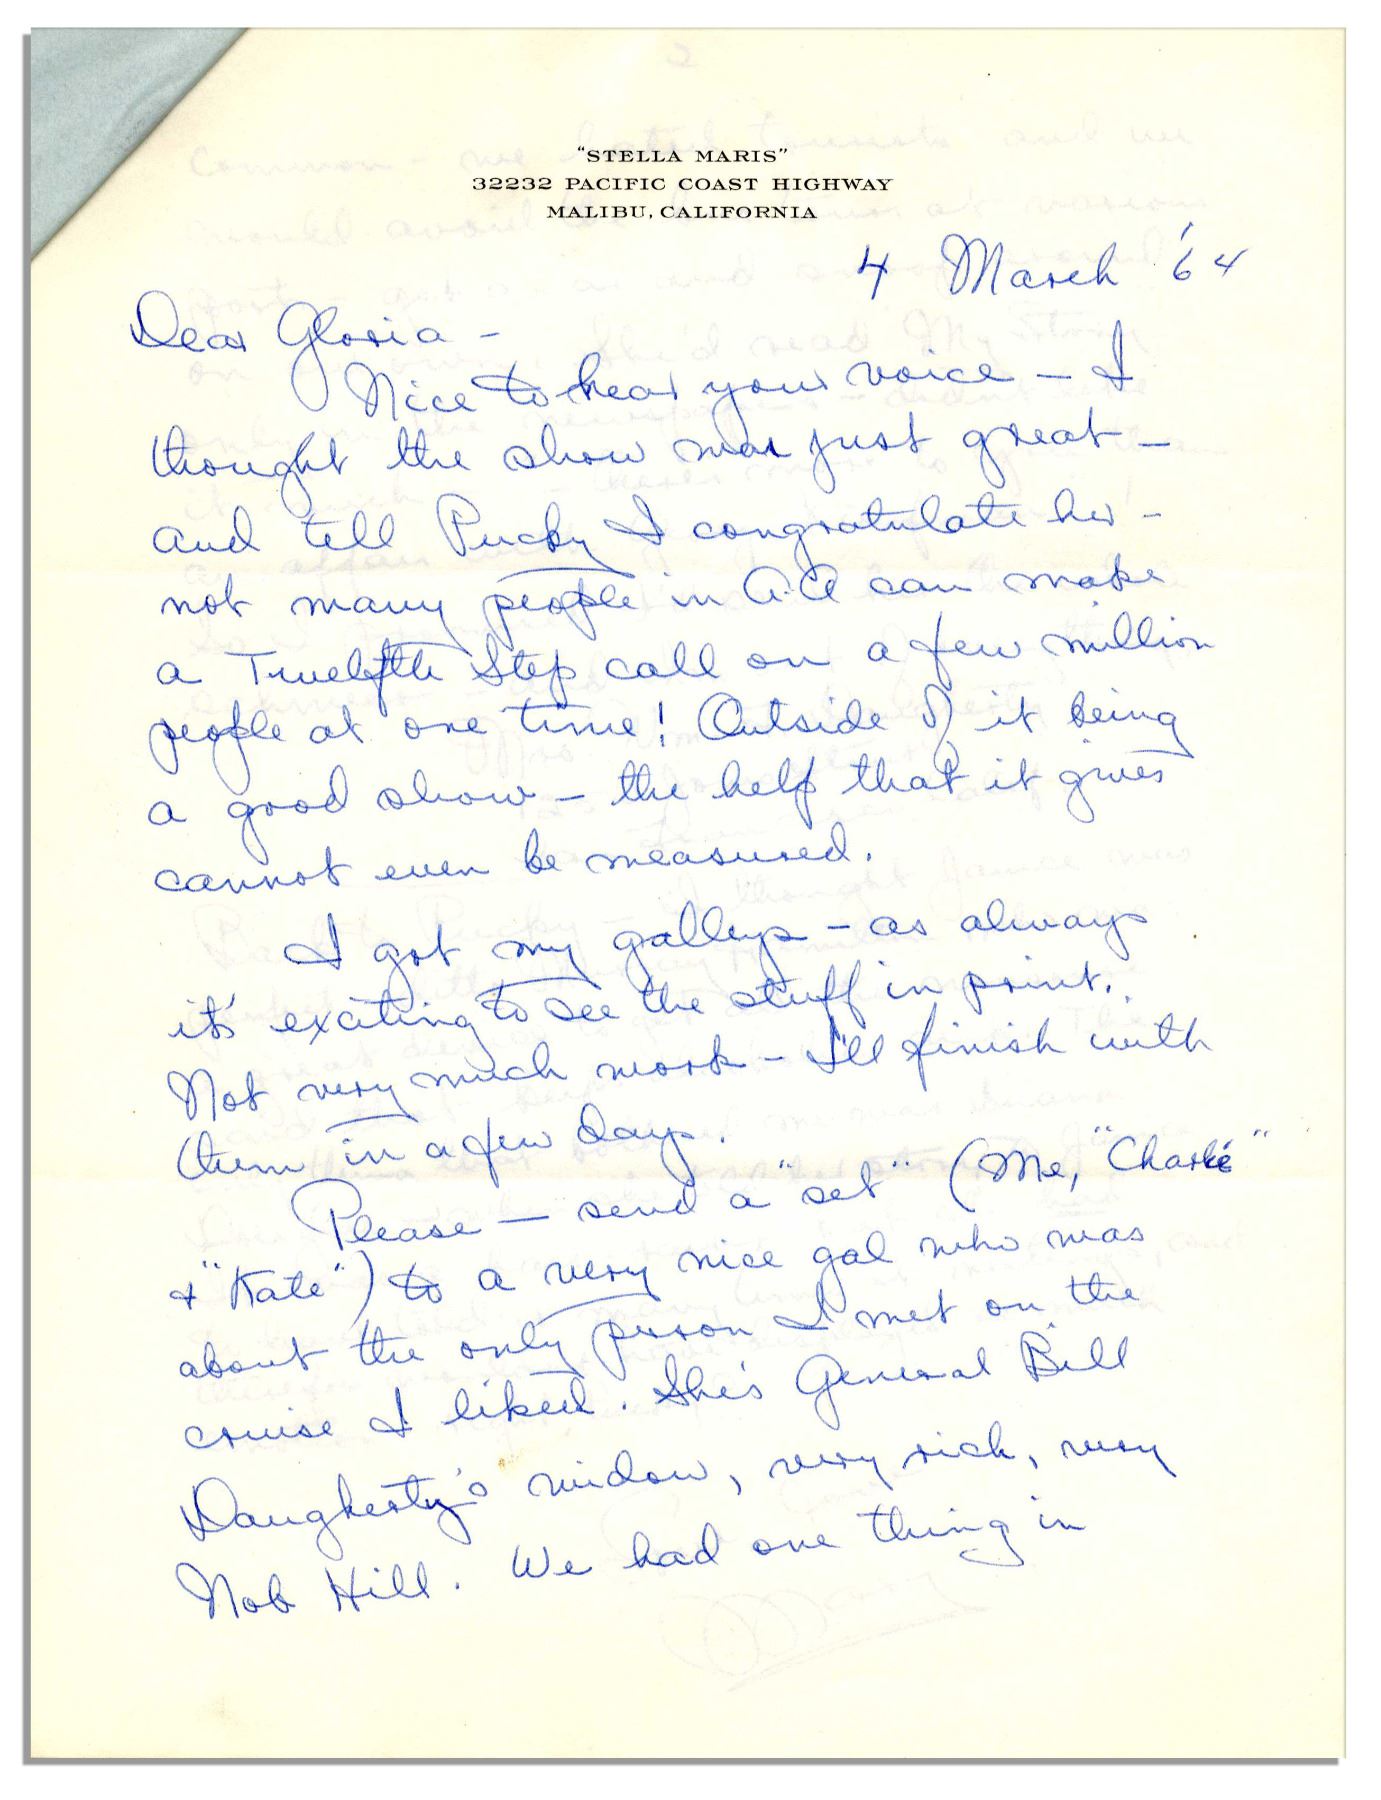 "STELLA MARIS"
32232 PACIFIC COAST HIGHWAY
MALIBU, CALIFORNIA
4 March '64
Dear Gloria -
Nice to hear your voice - I
thought the show was just great -
and tell Pucky I congratulate her -
not many people in A.A can make
a Twelfth Step call on a few million
people at one time! Outside of it being
a good show - the help that it gives
cannot even be measured.
I got my galleys - as always
it's exciting to see the stuff in print.
Not very much work - I'll finish with
them in a few days.
Please - send a "set" (Me, "Charlie"
+ "Kate") to a very nice gal who was
about the only person I met on the
cruise I liked. She's General Bill
Daugherty's widow, very rich, very
Nob Hill. We had one thing in